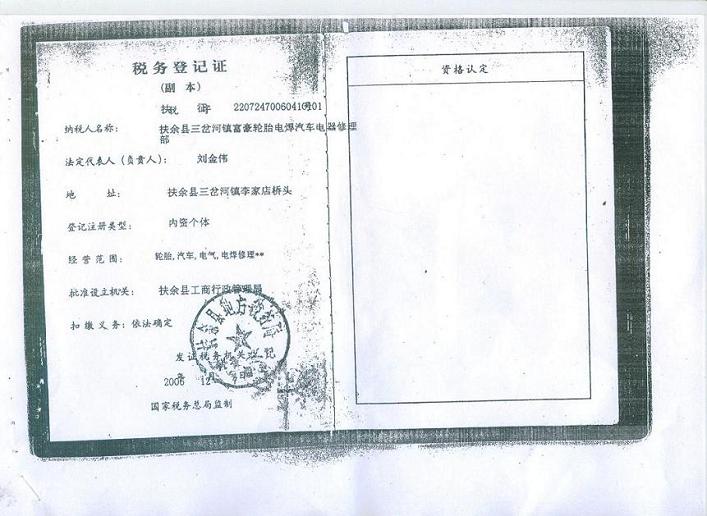 税务登记证
(副 本)
扶税 征字 220724700604101 01
纳税人名称： 扶余县三岔河镇富豪轮胎电焊汽车电器修理
部
法定代表人（负责人）： 刘金伟
地 址： 扶余县三岔河镇李家店桥头
登记注册类型： 内资个体
经营范围： 轮胎,汽车,电气,电焊修理**
批准设立机关： 扶余县工商行政管理局
扣缴义务：依法确定
扶余县地方税务局
发证税务机关
2006 12
国家税务总局监制
资格认定